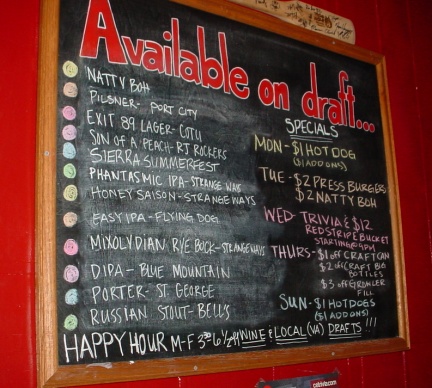 Available on draft...
NATTY BOH
PILSNER- PORT CITY
EXIT 89 LAGER- COTU
SON OF A PEACH- RJ ROCKERS
SIERRA SUMMERFEST
PHANTASMIC IPA-STRANGE WAYS
HONEY SAISON-STRANGE WAYS
EASY IPA-FLYING DOG
MIXOLYDIAN RYE BOCK-STRANGE WAYS
DIPA- BLUE MOUNTAIN
PORTER- ST. GEORGE
RUSSIAN STOUT-BELL'S
SPECIALS
MON-$1 HOT DOG
($1 ADD ONS)
TUE-$2 PRESS BURGERS
$2 NATTY BOH
WED TRIVIA & $12
RED STRIPE BUCKET
STARTING @ 9PM
THURS-$1 off CRAFT CAN
$2 off CRAFT BIG
BOTTLES
$3 off GROWLER
FILL
SUN-$1 HOT DOGS
($1 ADD ONS)
HAPPY HOUR M-F 3:30-6 1/2 off WINE & LOCAL (VA) DRAFTS!!!